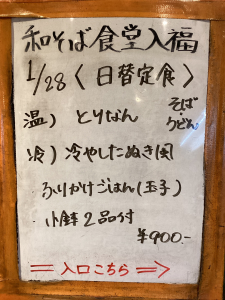 和そば食堂入福
1/28〈日替定食〉
温）とりなん そば うどん
冷）冷やしたぬき風
ふりかけごはん(玉子)
小鉢2品付
¥900.-
＝入口こちら⇒